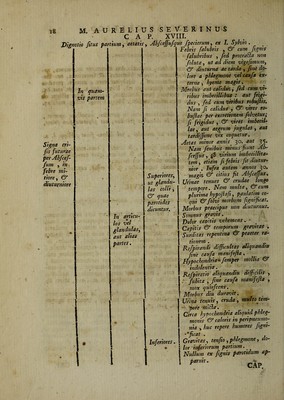 28 M. AURELIUS SEVERINUS
CAP. XVIII.
Dignotio situs partium, aetatis, Abscessusque specierum, ex I. Sylvio.
Signa cri-
sis futurae
per Abscef-
sum, in
febre mi-
tiore, &
diuturniore
In quam-
vis partem
In articu-
los &
glandulas,
aut alias
partes.
Superiores,
ut glandu-
las colli,
& quae
parotides
dicuntur.
Inferiores.
Febris salubris, & cum signis
salubribus, sed praecalla non
soluta, ut ad diem vigesimum,
& diuturna ac tarda, sine do-
lore a phlegmone vel causa ex-
terna, hyeme magis.
Morbus aut calidus, sed cum vi-
ribus imbecillibus: aut frigi-
dus, sed cum viribus robustis.
Nam si calidus, & vires ro-
bustae per excretionem solvetur;
si frigidus, & vires imbecil-
lae, aut aegrum jugulat, aut
tardissime vix coquetur.
Aetas minor annis 30. aut 35.
Nam senibus minus fiunt Ab-
scessus, ob virium imbecillita-
tem, etiam si febris sit diutur-
nior. Infra autem annis 30.
magis & citius fit Abscessus.
Urinae tenues & crudae longo
tempore. Nam multa, & cum
plurima hypostasi, paulatim co-
qui & solvi morbum significant.
Morbus praecipue non diuturnus.
Somnus gravis.
Dolor capitis vehemens.
Capitis & temporum gravitas.
Surditas repentina & praeter ra-
tionem.
Respirandi difficultas aliquandiu
sine causa manifesta.
Hypochondrion semper mollis &
indolentia.
Respiratio aliquandiu difficilis,
subito, sine causa manifesta,
non quiescens.
Morbus diu durarit.
Urina tenuis, cruda, multo tem-
pore micta.
Circa hypochondria aliquid phleg-
mones & caloris in peripneumo-
nia, huc repere humores signi-
ficat.
Gravitas, tensio, phlegmone, do-
lor inferiorum partium.
Nullum ex signis parotidum ap-
pareis.
CAP.